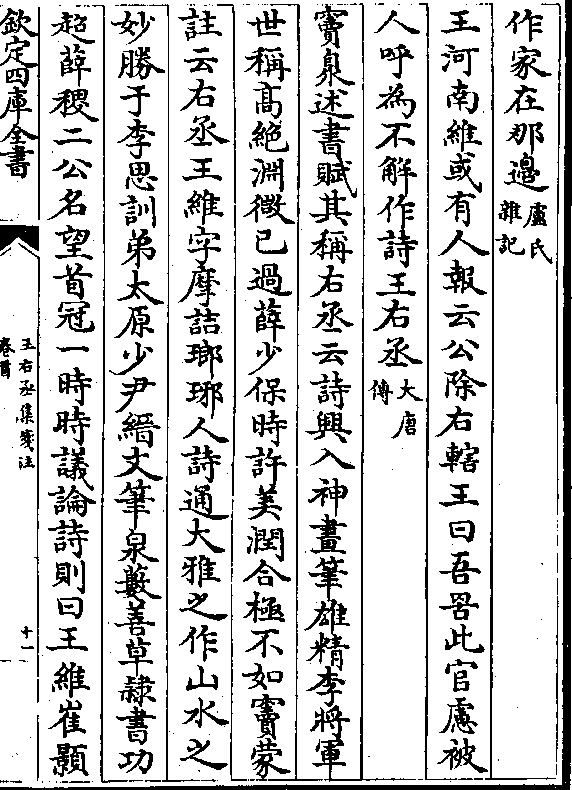 作家在那邉盧氏雜記
王河南維或有人報云公除右轄王曰吾罟此官慮被
人呼為不解作詩王右丞大唐傳
竇泉述書賦其稱右丞云詩興入神畫筆雄精李將軍
世稱髙絶淵微已過薛少保時許美潤合極不如竇蒙
註云右丞王維字摩詰瑯琊人詩通大雅之作山水之
妙勝于李思訓弟太原少尹縉文筆泉藪善草隸書功
超薛稷二公名望首冠一時時議論詩則曰王維崔顥
欽定四庫全書
王右丞集箋注
卷首
十一